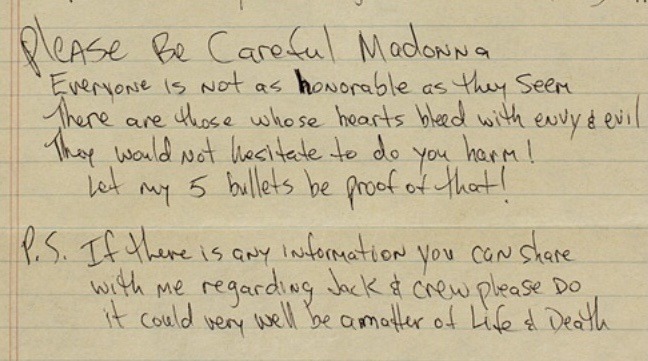 Please Be Careful Madonna
Everyone is not as honorable as they seem
There are those whose hearts bleed with envy & evil
They would not hesitate to do you harm!
Let my 5 bullets be proof of that!
P.S. If there is any information you can share
with me regarding Jack & crew please do
it could very well be a matter of Life & Death